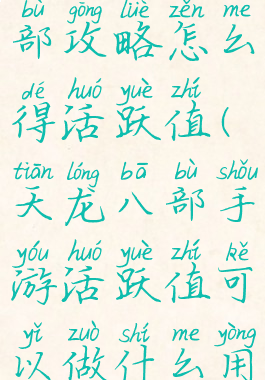 bù gōng lüè zěn me
部攻略怎么
dé huó yuè zhí
得活跃值(
tiān lóng bā bù shǒu
天龙八部手
yóu huó yuè zhí kě
游活跃值可
yǐ zuò shí me yòng
以做什么用